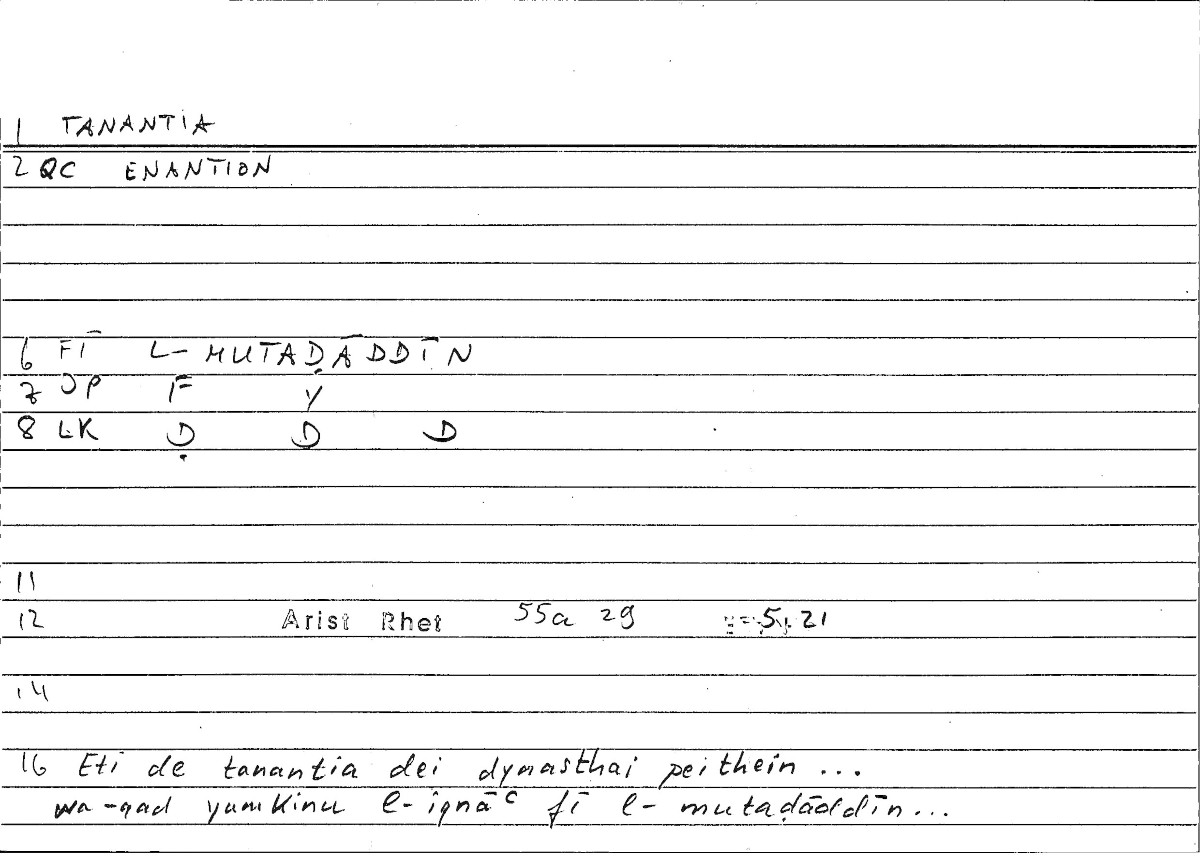 1 TANANTIA
2 QC ENANTION
6 FĪ L- MUTAḌĀDDĪN
7 OP F Y
8 LK Ḍ D D
11
12 Arist Rhet 55a 29 = 5, 21
14
16 Eti de tanantia dei dynasthai peithein ...
wa-qad yumkinu l-iqnāᶜ fī l- mutaḍāddīn...